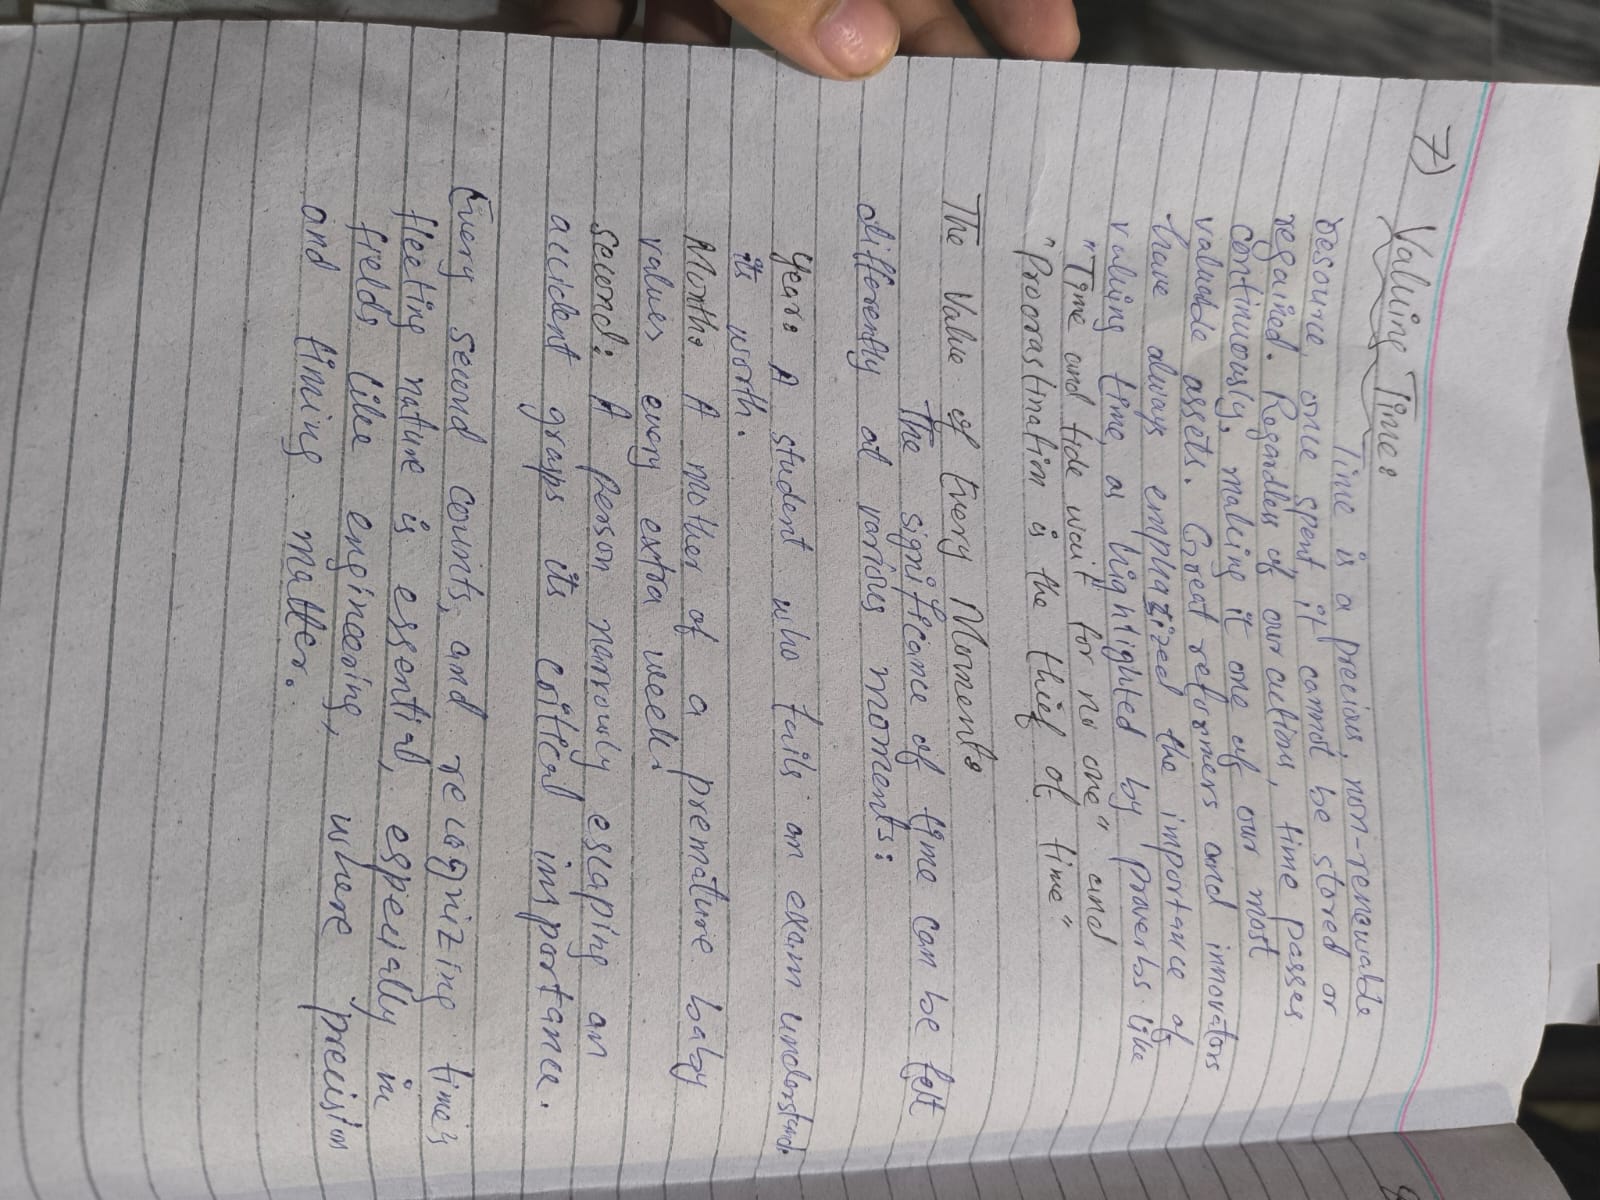 7) Valuing Time:
Time is a precious, non-renewable
resource, once spent, it cannot be stored or
regained. Regardless of our actions, time passes
continuously, making it one of our most
valuable assets. Great reformers and innovators
have always emphasized the importance of
valuing time, as highlighted by proverbs like
"Time and tide wait for no one" and
"Procrastination is the thief of time"
The Value of Every Moment:
The significance of time can be felt
differently at various moments:
Year: A student who fails an exam understands
its worth.
Month: A mother of a premature baby
values every extra week.
Second: A person narrowly escaping an
accident grasps its critical importance.
Every second counts, and recognizing time's
fleeting nature is essential, especially in
fields like engineering, where precision
and timing matter.